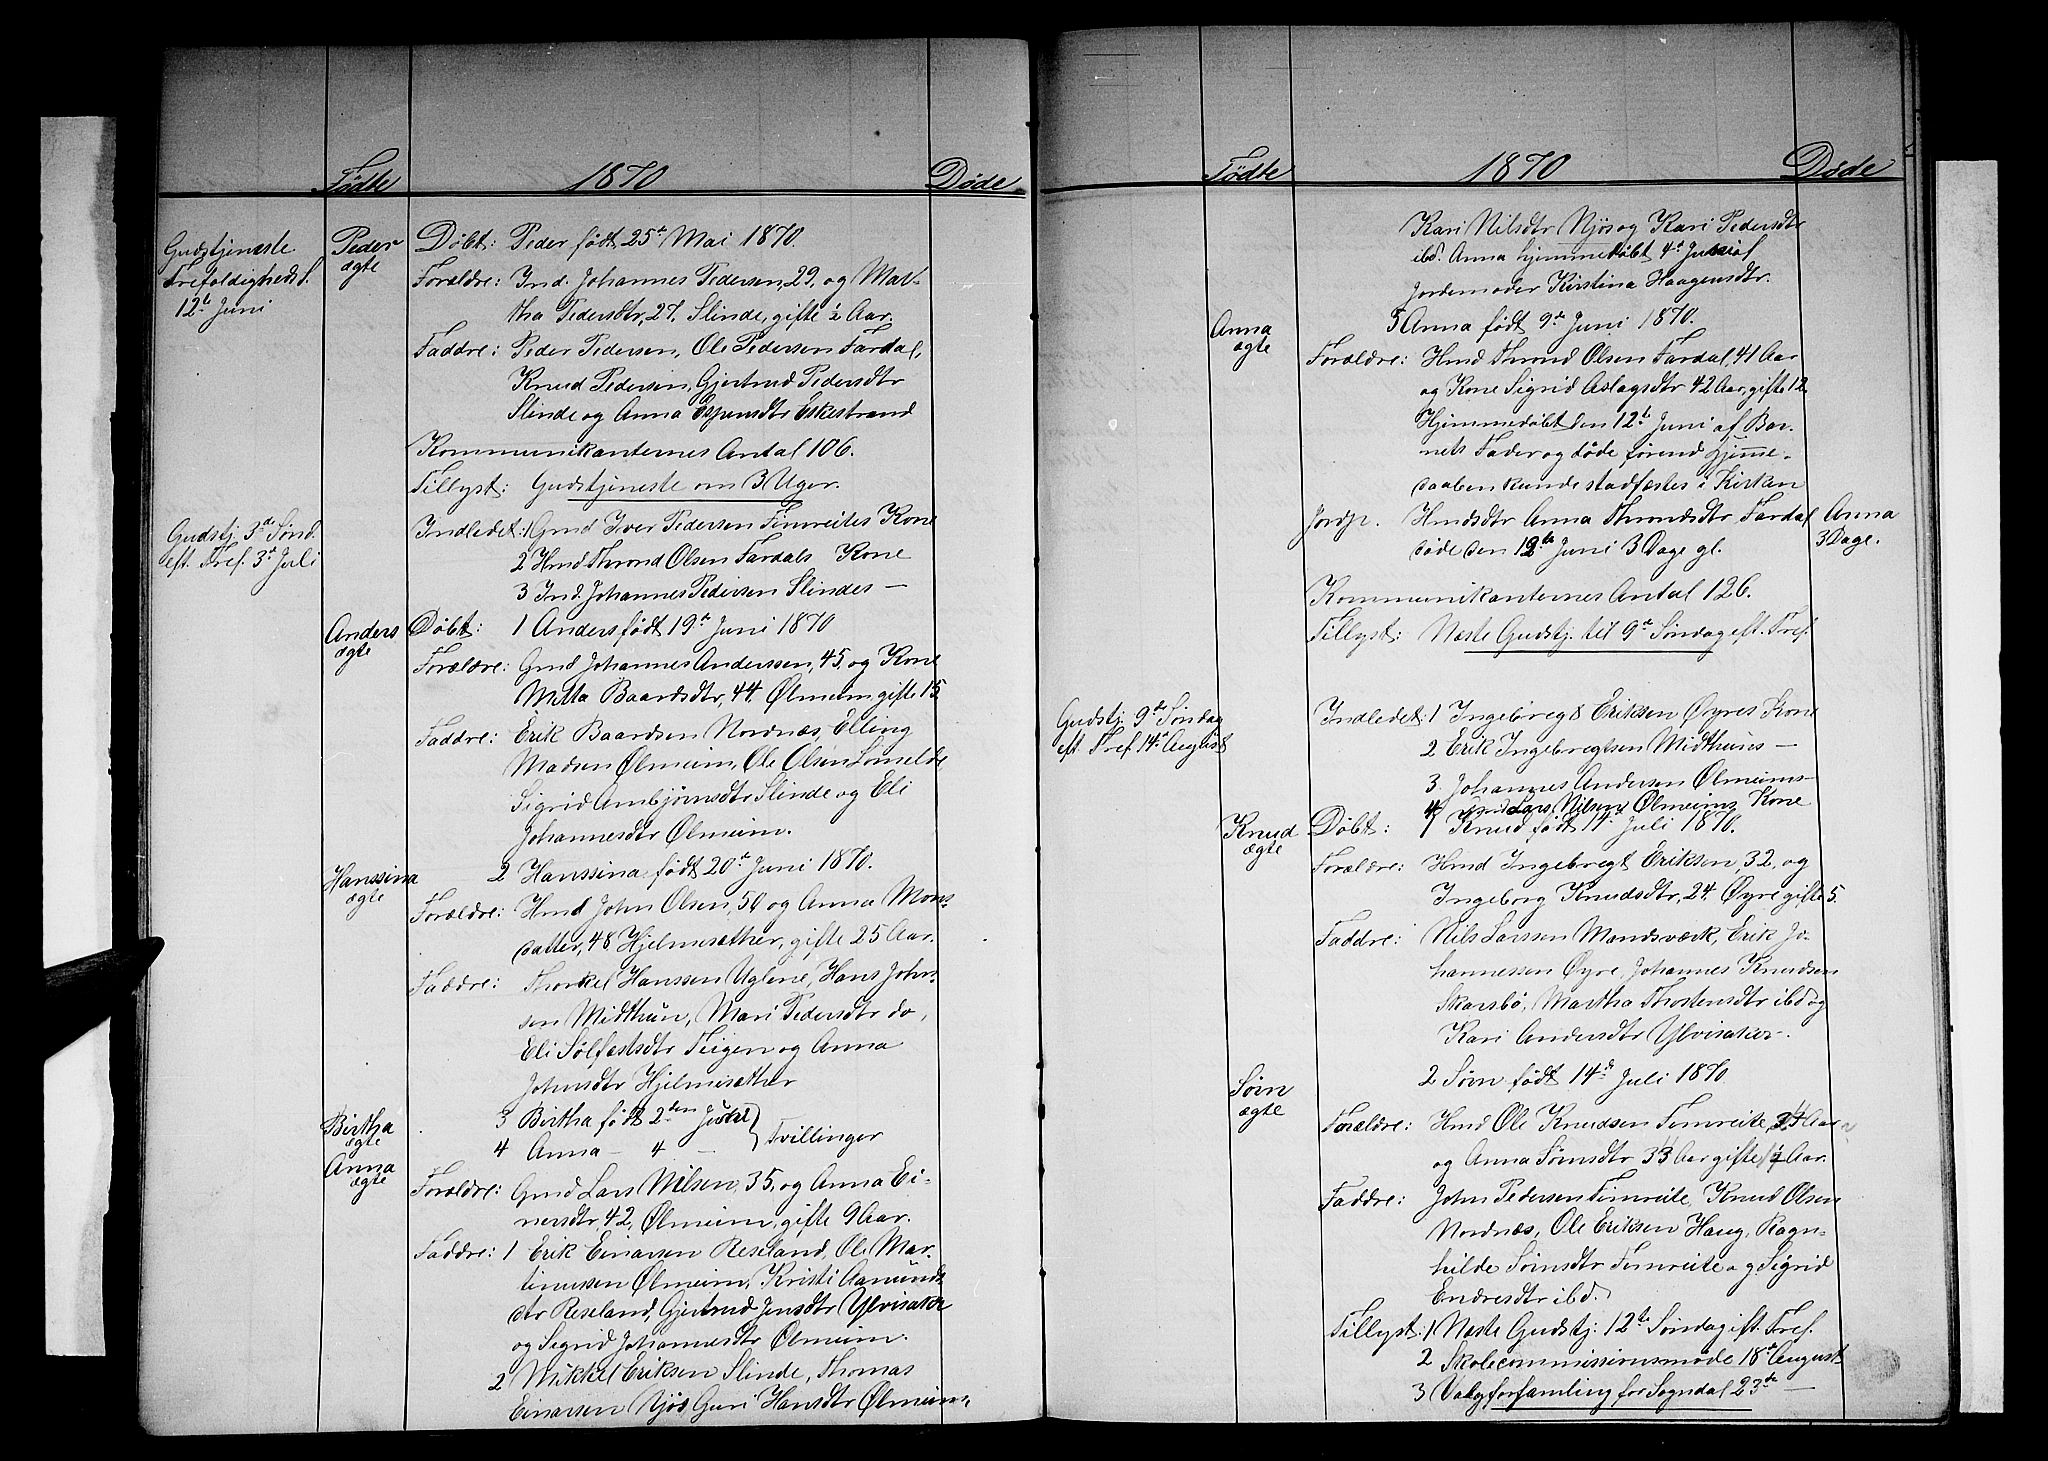 Fødte 1870 Døde
Gudstjeneste
Trefoldigheds s.
12te Juni
Peder
ægte
Døbt: Peder født 25de Mai 1870.
Forældre: Ind. Johannes Pedersen, 29, og Mar-
tha Pedersdtr, 27, Slinde, gifte ½ Aar.
Faddre: Peder Pedersen, Ole Pedersen Fardal,
Knud Pedersen, Gjertrud Pedersdtr
Slinde og Anna Espensdtr Eskestrand
Kommunikanternes Antal 106.
Tillyst: Gudstjeneste om 3 Uger.
Gudstj. 3de Sønd.
eft. Tref. 3de Juli
Indledet: 1 Gmd Iver Pedersen Fimreites Kone
2 Hmd Thrond Olsen Fardals Kone
3 Ind. Johannes Pedersen Slindes —
Anders
ægte
Døbt: 1 Anders født 19de Juni 1870
Forældre: Gmd Johannes Anderssen, 45, og Kone
Mitta Baardsdtr, 44, Ølmeim, gifte 15
Faddre: Erik Baardsen Nordnæs, Elling
Madsen Ølmeim, Ole Olsen Lomelde,
Sigrid Ambjørnsdtr Slinde og Eli
Johannesdtr Ølmeim.
Hanssina
ægte
2 Hanssina født 20de Juni 1870.
Forældre: Hmd John Olsen, 50 og Anna Mons-
datter, 48 Hjelmisæther, gifte 25 Aar.
Faddre: Thorkel Hanssen Uglene, Hans John-
sen Midthun, Mari Pedersdtr do,
Eli Sølfestsdtr Teigen og Anna
Johnsdtr Hjelmisæther
Birtha
ægte
Anna
ægte
3 Birtha født 2den Juni
4 Anna — 4 — } Tvillinger
Forældre: Gmd Lars Nilsen, 35, og Anna Ei-
nersdtr, 42, Ølmeim, gifte 9 Aar.
Faddre: 1 Erik Einarsen Reseland, Ole Mar-
tinussen Ølmeim, Kristi Aamunds-
dtr Reseland, Gjertrud Jensdtr Ylvisaker
og Sigrid Johannesdtr Ølmeim.
2 Mikkel Eriksen Slinde, Thomas
Einarsen Njøs Guri Hansdtr Ølmeim,
Fødte 1870 Døde
Kari Nilsdtr Njøs og Kari Pedersdtr
ibd. Anna hjemmedøbt 4de Juni af
Jordemoder Kirstina Haagensdtr.
Anna
ægte
5 Anna født 9de Juni 1870.
Forældre: Hmd Thrond Olsen Fardal, 41 Aar
og Kone Sigrid Aslagsdtr 42 Aar, gifte 12
Hjemmedøbt den 12te Juni af Bar-
nets Fader og døde førend Hjemme-
daaben kunde stadfæstes i Kirken
Jordp. Hmdsdtr Anna Throndsdtr Fardal
døde den 12te Juni 3 Dage gl.
Anna
3 Dage.
Kommunikanternes Antal 126.
Tillyst: Næste Gudstj. til 9de Søndag eft. Tref.
Gudstj. 9de Søndag
eft. Tref. 14de August
Indledet: 1 Ingebregt Eriksen Øyres Kone
2 Erik Ingebregtsen Midthuns —
3 Johannes Andersen Ølmeims —
4 Gmd Lars Nilsen Ølmeims Kone
Knud
ægte
Døbt: 1 Knud født 11te Juli 1870.
Forældre: Hmd Ingebregt Eriksen, 32, og
Ingeborg Knudsdtr, 24, Øyre gifte 5.
Faddre: Nils Larssen Mundsværk, Erik Jo-
hannessen Øyre, Johannes Knudsen
Skarsbø, Martha Thostensdtr ibd og
Kari Andersdtr Ylvisaker.
Søvn
ægte
2 Søvn født 14de Juli 1870
Forældre: Hmd Ole Knudsen Fimreite, 34 Aar
og Anna Søvnsdtr 33 Aar gifte Aar.
Faddre: John Pedersen Fimreite, Knud Olsen
Nordnæs, Ole Eriksen Haug, Ragn-
hilde Søvnsdtr Fimreite og Sigrid
Endresdtr ibd.
Tillyst: 1 Næste Gudstj. 12te Søndag eft. Tref.
2 Skolecommissionsmøde 18de August
3 Valgforsamling for Sogndal 23de —